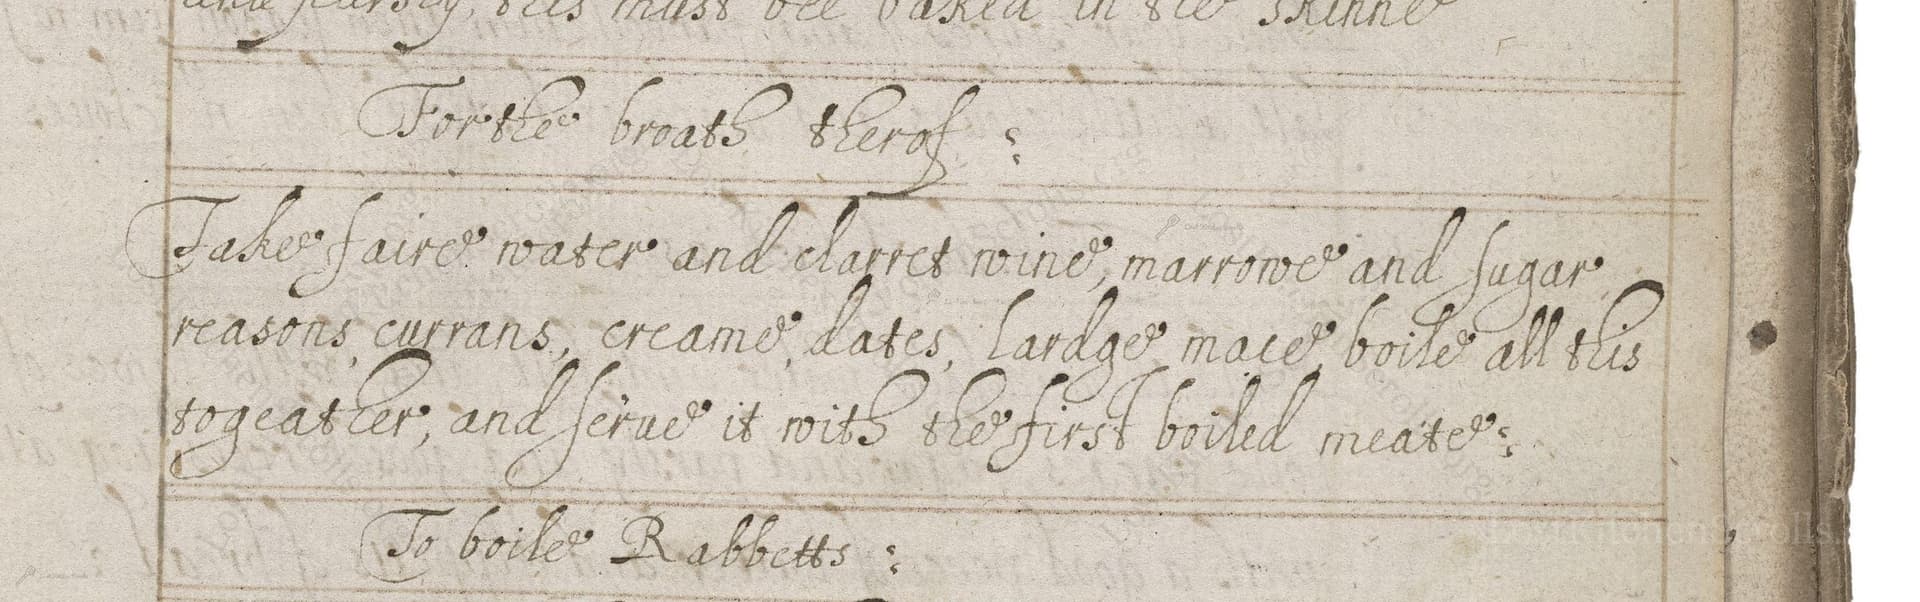 and parsley, this must bee baked in the skinne
For the broath therof :
Take faire water and clarret wine, marrowe and sugar,
reasons, currans, creame, dates, lardge mace, boile all this
togeather, and serue it with the first boiled meate :
To boile Rabbetts :